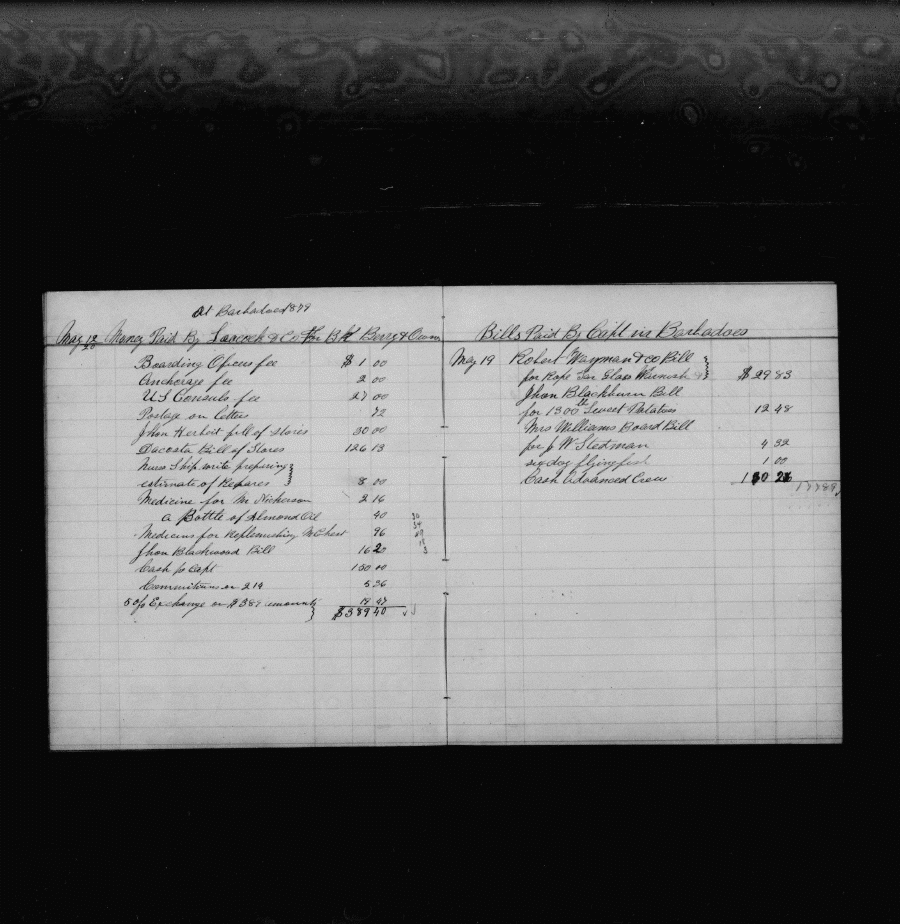 At Barbadoes 1879
May 19 Money Paid By Laecock & Co For B Berry & Owners
Boarding Oficers fee $ 1 00
Anchorage fee 2 00
U S Consuls fee 27 00
Postage on letters 72
Jhon Herbert bill of stores 30 00
Dacosta Bill of Stores 126 13
Ship write prepairing
estimate of Repares 8 00
Medicine for Mr Nickerson 2 16
a Bottle of Almond Oil 40
Medicins for Replenishing M Chest 96
Jhon Blackwood Bill 16 20
Cash to Capt 150 00
Commitions on 219 5 26
5 o/o Exchange on $389 amounts 19 47
$389 40
Bills Paid By Capt in Barbadoes
May 19 Robert Wayman & co Bill
for Rope Tar Glass Varnish & $ 29 83
Jhon Blackburn Bill
for 1300 lb Sweet Potatoes 12 48
Mrs Williams Board Bill
for J W Stedman 4 32
six doz flying fish 1 00
Cash Advanced Crew